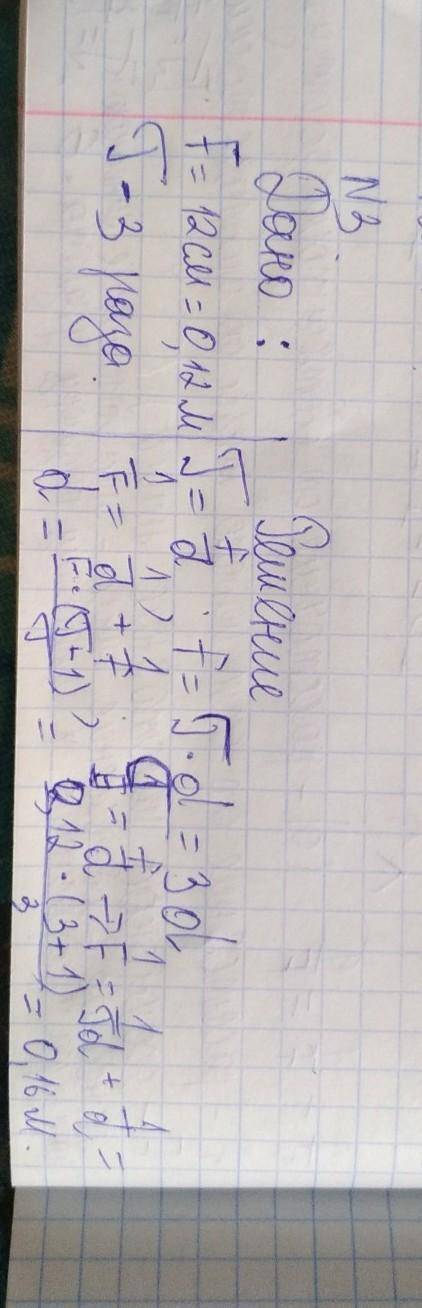 N3
Дано :
F = 12см = 0,12 м
Г - 3 раза.
Решение
Г = f/d ; f = Г·d = 3d
1/F = 1/d + 1/f ; Г = f/d → 1/F = 1/Гd + 1/d =
d = F·(Г+1)/Г = 0,12·(3+1)/3 = 0,16 м.